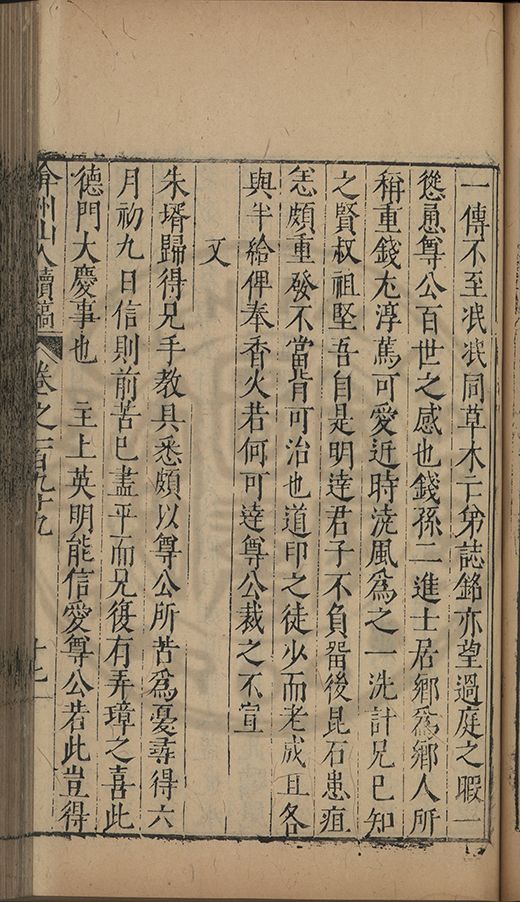 一傳不至泯泯同草木亡弟誌銘亦望過庭之暇一
慫恿尊公百世之感也錢孫二進士居鄉爲鄉人所
稱重錢尤淳篤可愛近時澆風爲之一洗計兄已知
之賢叔祖堅吾自是明達君子不負畱後昆石患疽
恙頗重發不當背可治也道印之徒少而老成且各
與半給俾奉香火若何可達尊公裁之不宣
又
朱壻歸得兄手教具悉頗以尊公所苦爲憂尋得六
月初九日信則前苦已盡平而兄復有弄璋之喜此
德門大慶事也　主上英明能信愛尊公若此豈得
弇州山人續稿 卷之一百九十九 十七